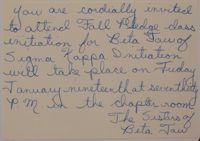 You are cordially invited
to attend Fall Pledge class
initiation for Beta Tau of
Sigma Kappa Initiation
will take place on Friday
January nineteenth at seven thirty
P M in the chapter room
The Sisters of
Beta Tau